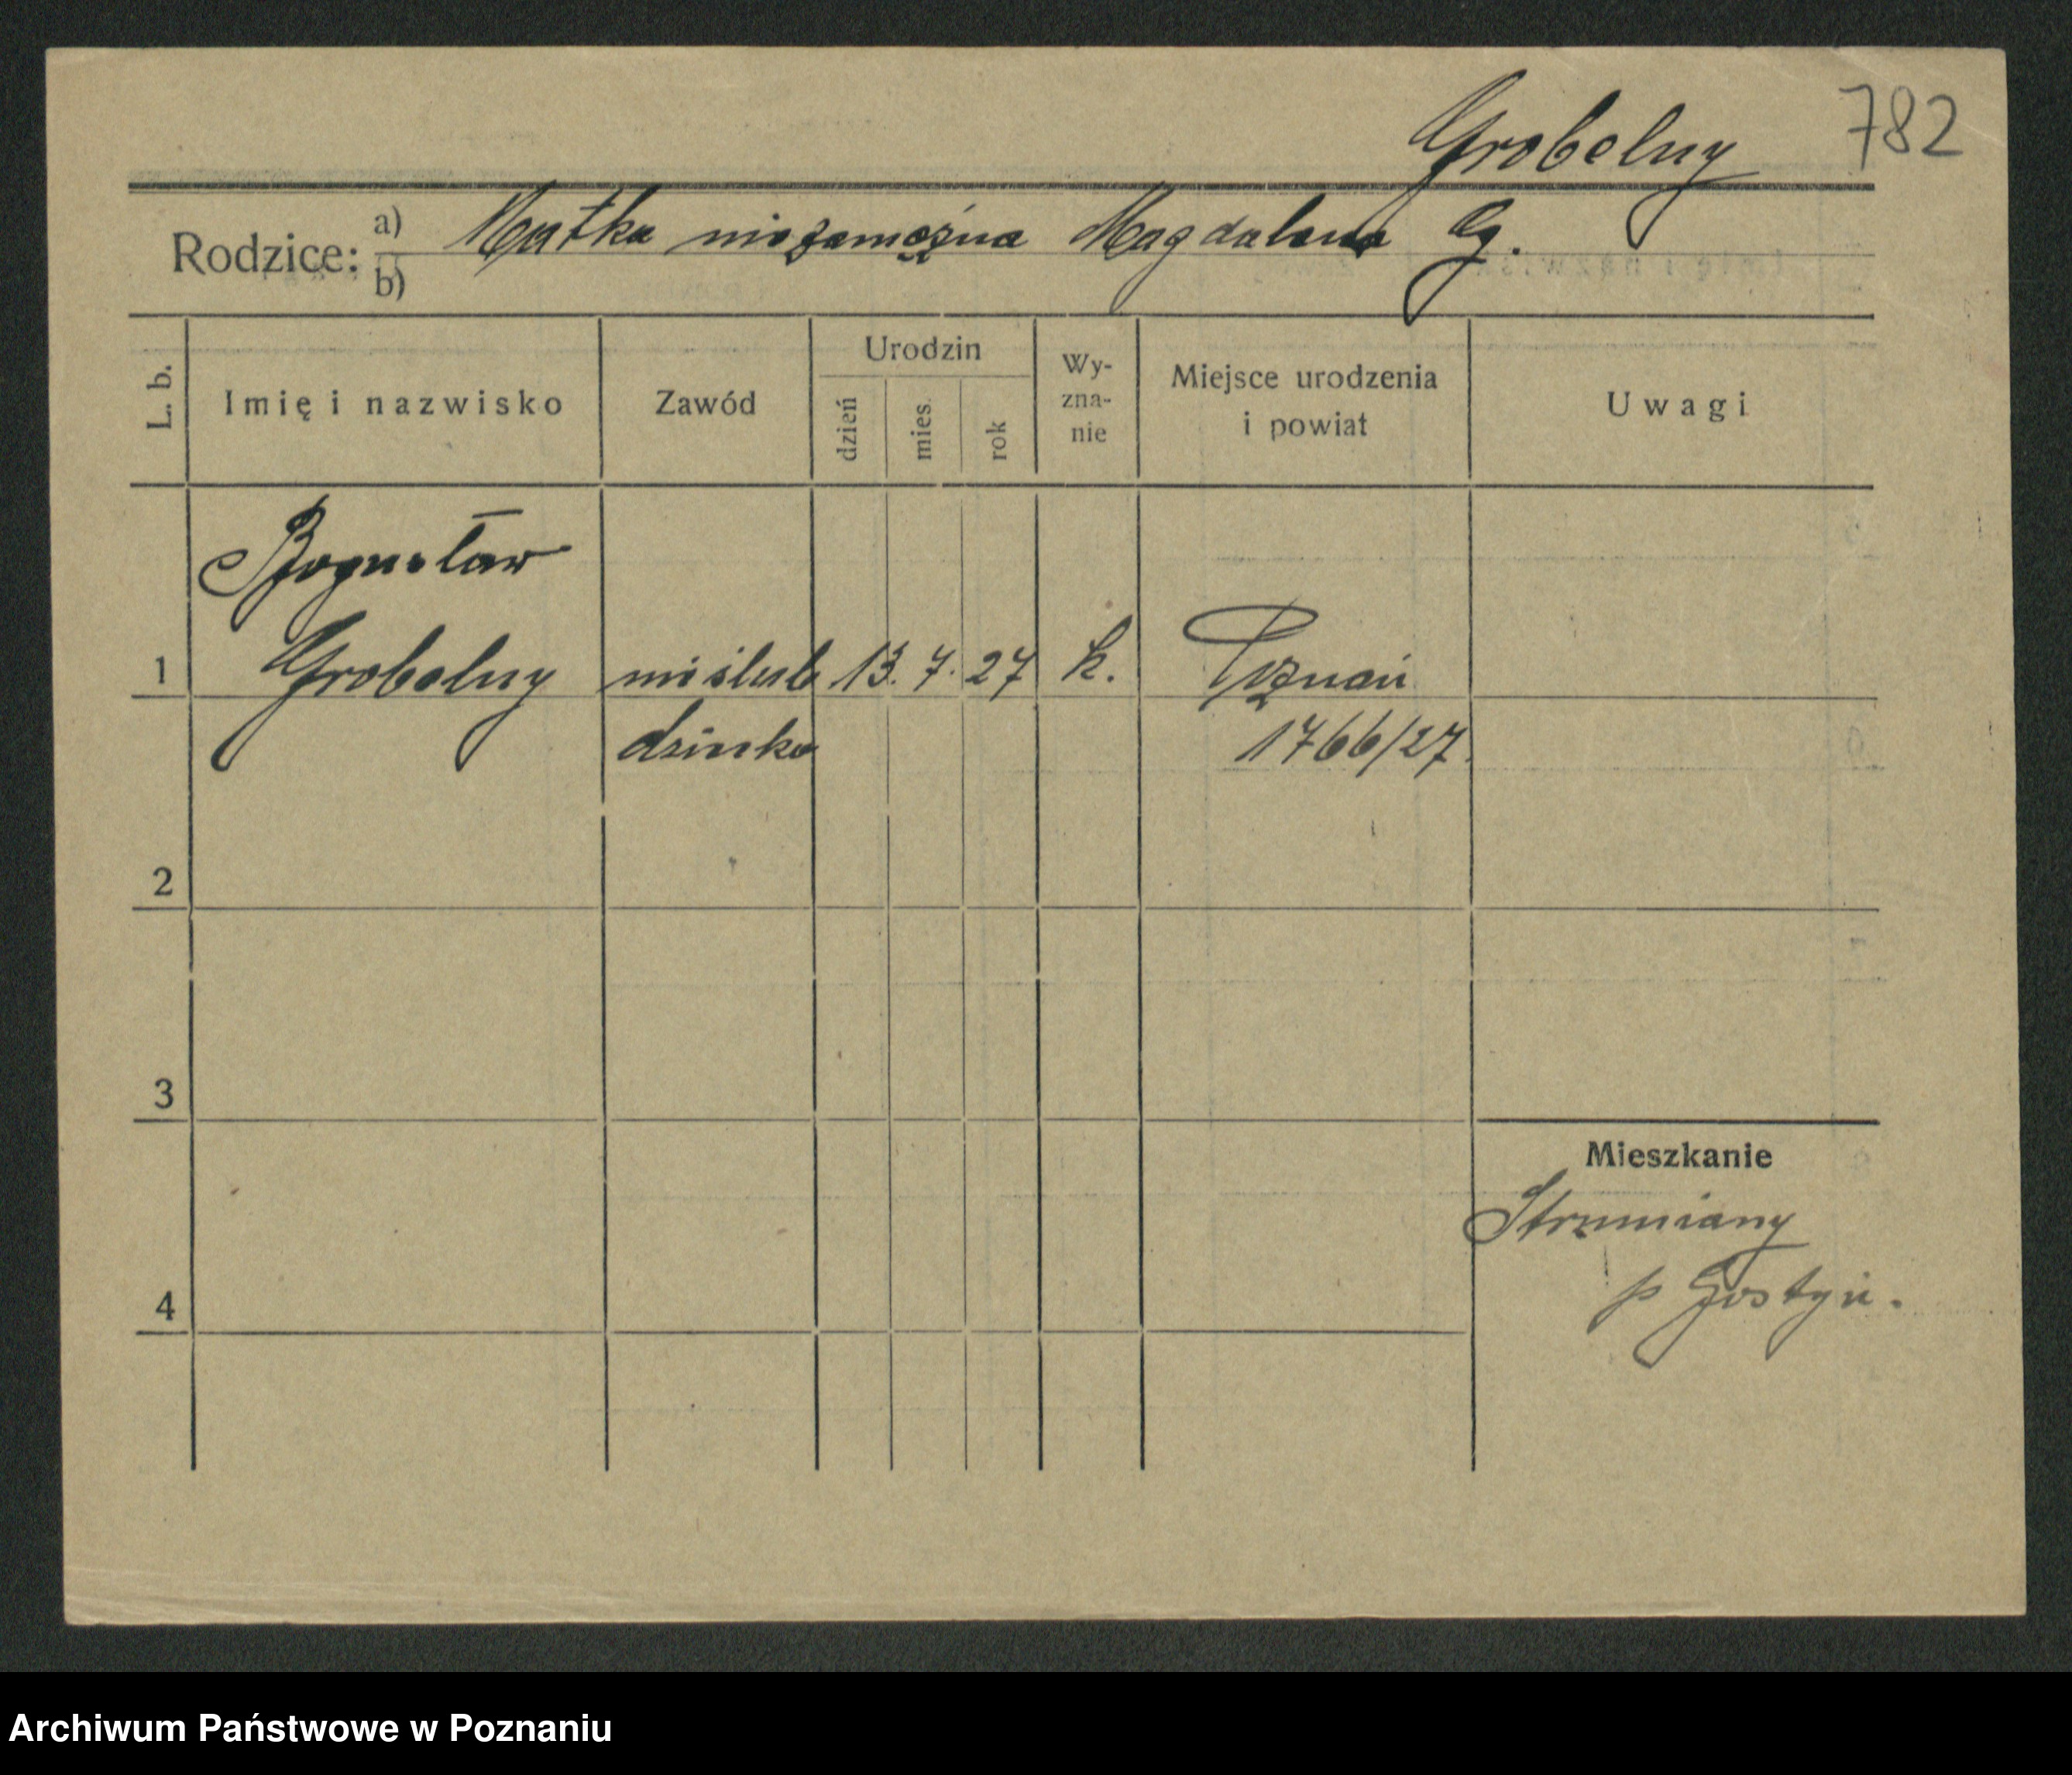 Grobelny 782
Rodzice: a) Matka niezamężna Magdalena G.
b)
L. b. Imię i nazwisko Zawód Urodzin dzień mies. rok Wy-zna-nie Miejsce urodzenia i powiat Uwagi
Bogusław
1 Grobelny nieślub 13. 7. 27 k. Poznań
dziecko 1766/27.
2
3
Mieszkanie
Strumiany
4 p Gostyń.
Archiwum Państwowe w Poznaniu